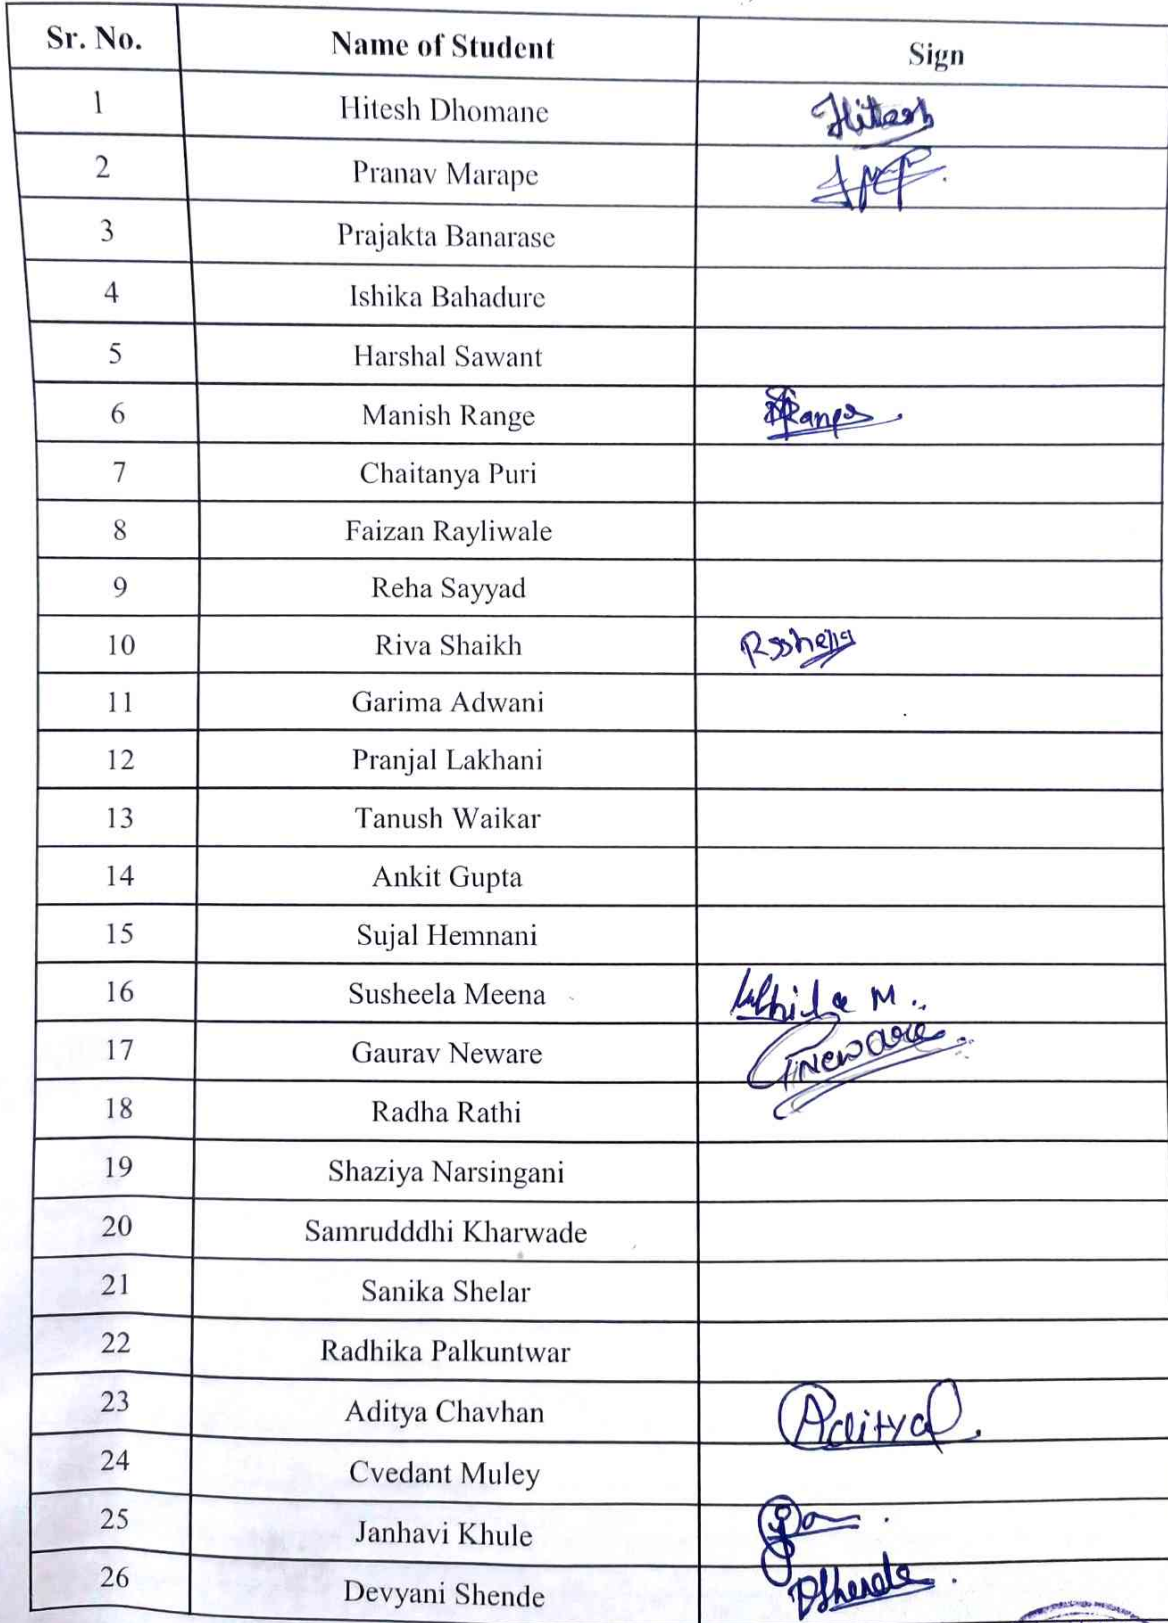 Sr. No. Name of Student Sign
1 Hitesh Dhomane Hitesh
2 Pranav Marape
3 Prajakta Banarase
4 Ishika Bahadure
5 Harshal Sawant
6 Manish Range Range
7 Chaitanya Puri
8 Faizan Rayliwale
9 Reha Sayyad
10 Riva Shaikh
11 Garima Adwani
12 Pranjal Lakhani
13 Tanush Waikar
14 Ankit Gupta
15 Sujal Hemnani
16 Susheela Meena M.
17 Gaurav Neware GNeware
18 Radha Rathi
19 Shaziya Narsingani
20 Samrudddhi Kharwade
21 Sanika Shelar
22 Radhika Palkuntwar
23 Aditya Chavhan Aditya
24 Cvedant Muley
25 Janhavi Khule
26 Devyani Shende DShende